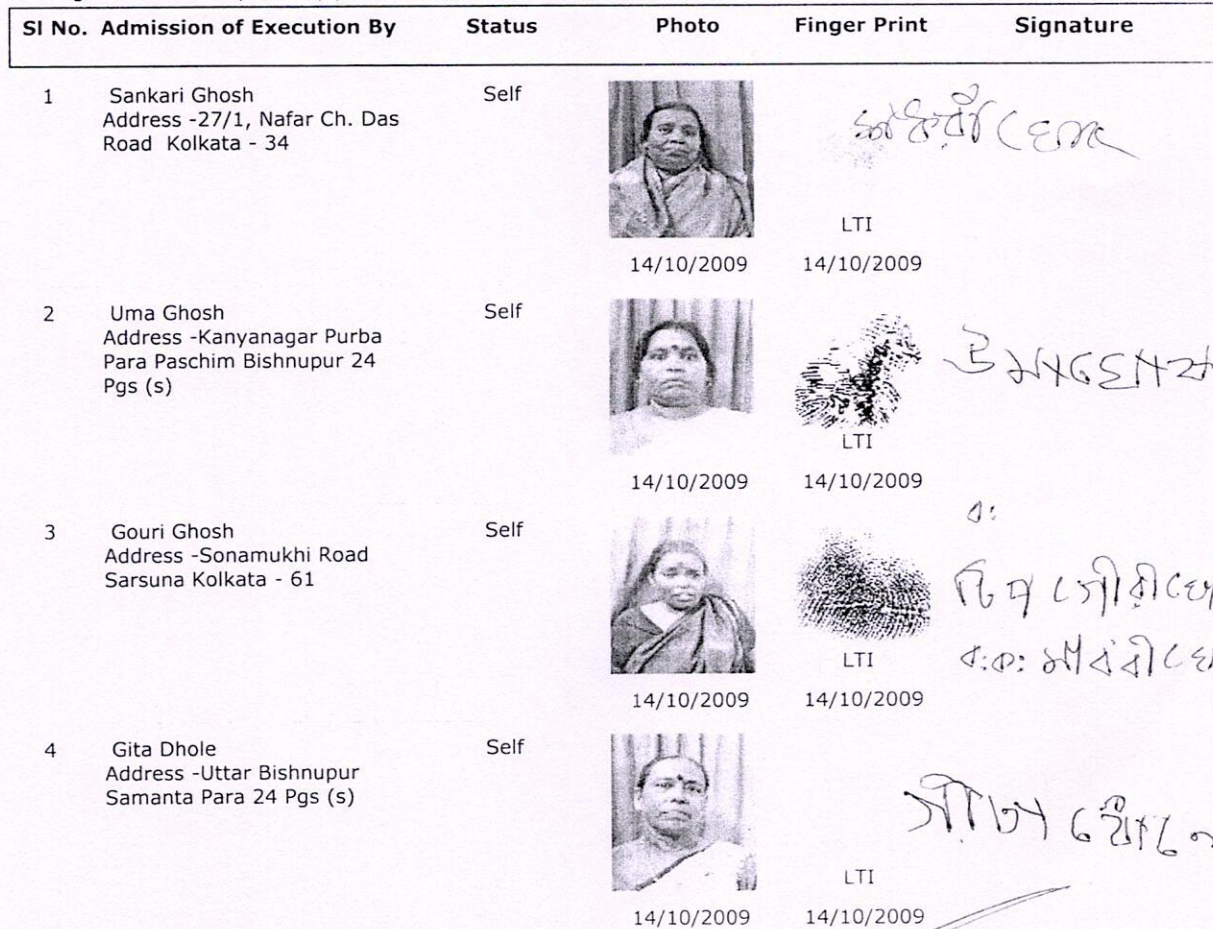 Sl No. Admission of Execution By Status Photo Finger Print Signature
1 Sankari Ghosh Self
Address -27/1, Nafar Ch. Das
Road Kolkata - 34
শংকরী ঘোষ
LTI
14/10/2009 14/10/2009
2 Uma Ghosh Self
Address -Kanyanagar Purba
Para Paschim Bishnupur 24
Pgs (s)
উমা ঘোষ
LTI
14/10/2009 14/10/2009
3 Gouri Ghosh Self
Address -Sonamukhi Road
Sarsuna Kolkata - 61
ব:
টিপ গৌরী
ব:ক:
LTI
14/10/2009 14/10/2009
4 Gita Dhole Self
Address -Uttar Bishnupur
Samanta Para 24 Pgs (s)
গীতা
LTI
14/10/2009 14/10/2009